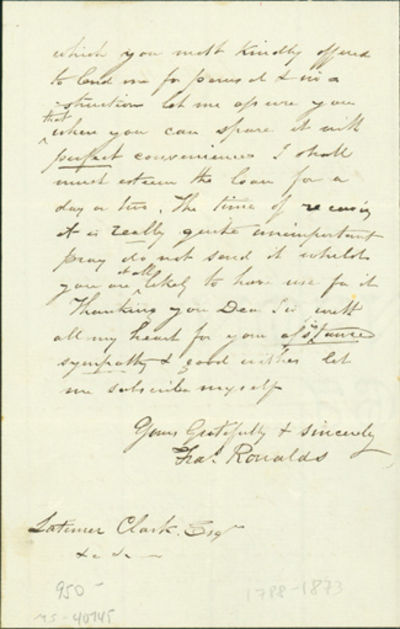 which you most kindly offered
to lend me for perusal & in
struction let me assure you
that
when you can spare it with
perfect convenience I shall
much esteem the loan for a
day or two. The time of receiving
it is really quite unimportant
pray do not send it whilst
at all
you are likely to have use for it
Thanking you Dear Sir with
all my heart for your assistance
sympathy & good wishes let
me subscribe myself
Yours Gratefully & sincerely
Fras. Ronalds
Latimer Clark. Esqr
&c &c
950
MS-40745
1788-1873